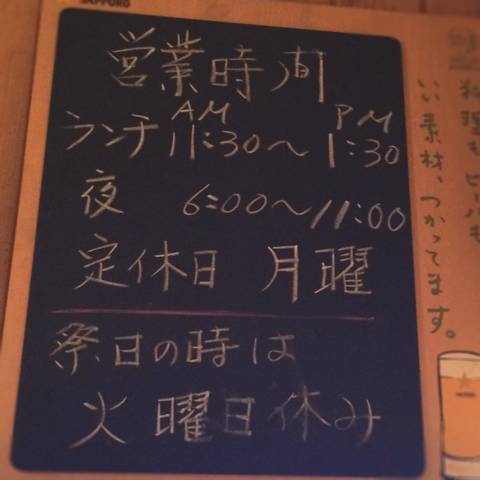 SAPPORO
営業時間
AM PM
ランチ 11:30〜1:30
夜 6:00〜11:00
定休日 月曜
祭日の時は
火曜日休み
料理も ビールも
いい素材、つかってます。